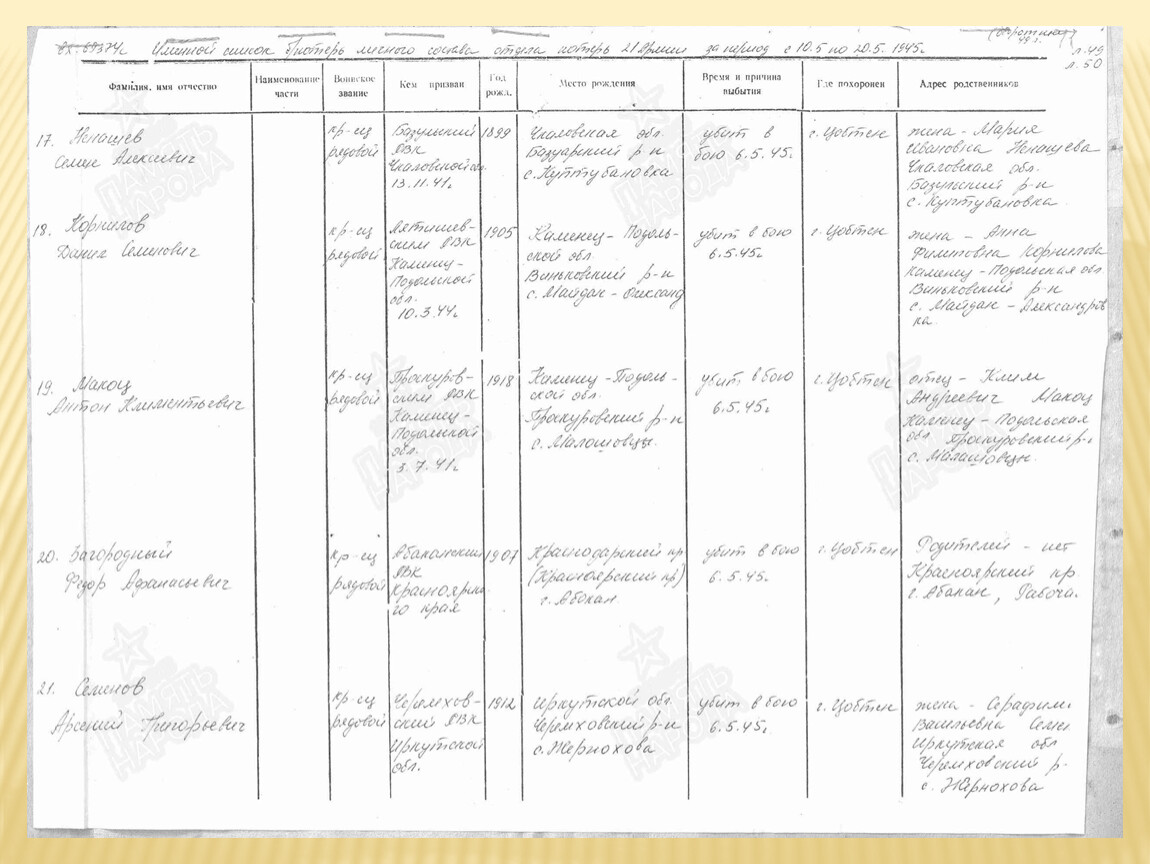 вх. 69374с Именной список б/потерь личного состава отдела потерь 21 армии за период с 10.5 по 20.5. 1945г.
49 г.
л.49
л.50
Фамилия, имя отчество
Наименование части
Воинское звание
Кем призван
Год рожд.
Место рождения
Время и причина выбытия
Где похоронен
Адрес родственников
17. Ненашев
Семен Алексеевич
кр-ец
рядовой
РВК
Чкаловской обл.
13.11.41г.
1899
Чкаловская обл.
Базуарский р-н
с. Куптубановка
убит в
бою 6.5.45г.
г. Цобтен
жена - Мария
Ивановна Ненашева
Чкаловская обл.
р-н
с. Куптубановка
18. Корнилов
Данил Семенович
кр-ец
рядовой
Летичев-
ским РВК
Каменец-
Подольской
обл.
10.3.44г.
1905
Каменец-Подоль-
ской обл.
Виньковский р-н
с. Майдан-Александ
убит в бою
6.5.45г
г. Цобтен
жена - Анна
Филиповна Корнилова
Каменец-Подольская обл.
Виньковский р-н
с. Майдан-Александров
ка.
19. Макоц
Антон Климентьевич
кр-ец
рядовой
Проскуров-
ским РВК
Каменец-
Подольской
обл.
3.7.41г.
1918
Каменец-Подоль-
ской обл.
Проскуровский р-н
с. Малошовцы.
убит в бою
6.5.45г
г. Цобтен
отец - Клим
Андреевич Макоц
Каменец-Подольская
обл. Проскуровский р-
с. Малашовцы.
20. Загородный
Федор Афанасьевич
кр-ец
рядовой
Абаканским
РВК
Красноярско-
го края
1907
Краснодарский кр
(Красноярский кр)
г. Абакан.
убит в бою
6.5.45г.
г. Цобтен
Родителей - нет
Красноярский кр.
г. Абакан, Рабоча.
21. Семенов
Арсений Григорьевич
кр-ец
рядовой
Черемхов-
ский РВК
Иркутской
обл.
1912
Иркутской обл.
Черемховский р-н
с. Жернохова
убит в бою
6.5.45г.
г. Цобтен
жена - Серафим.
Васильевна Семе
Иркутская обл
Черемховский р-
с. Жернохова
ПАМЯТЬ НАРОДА